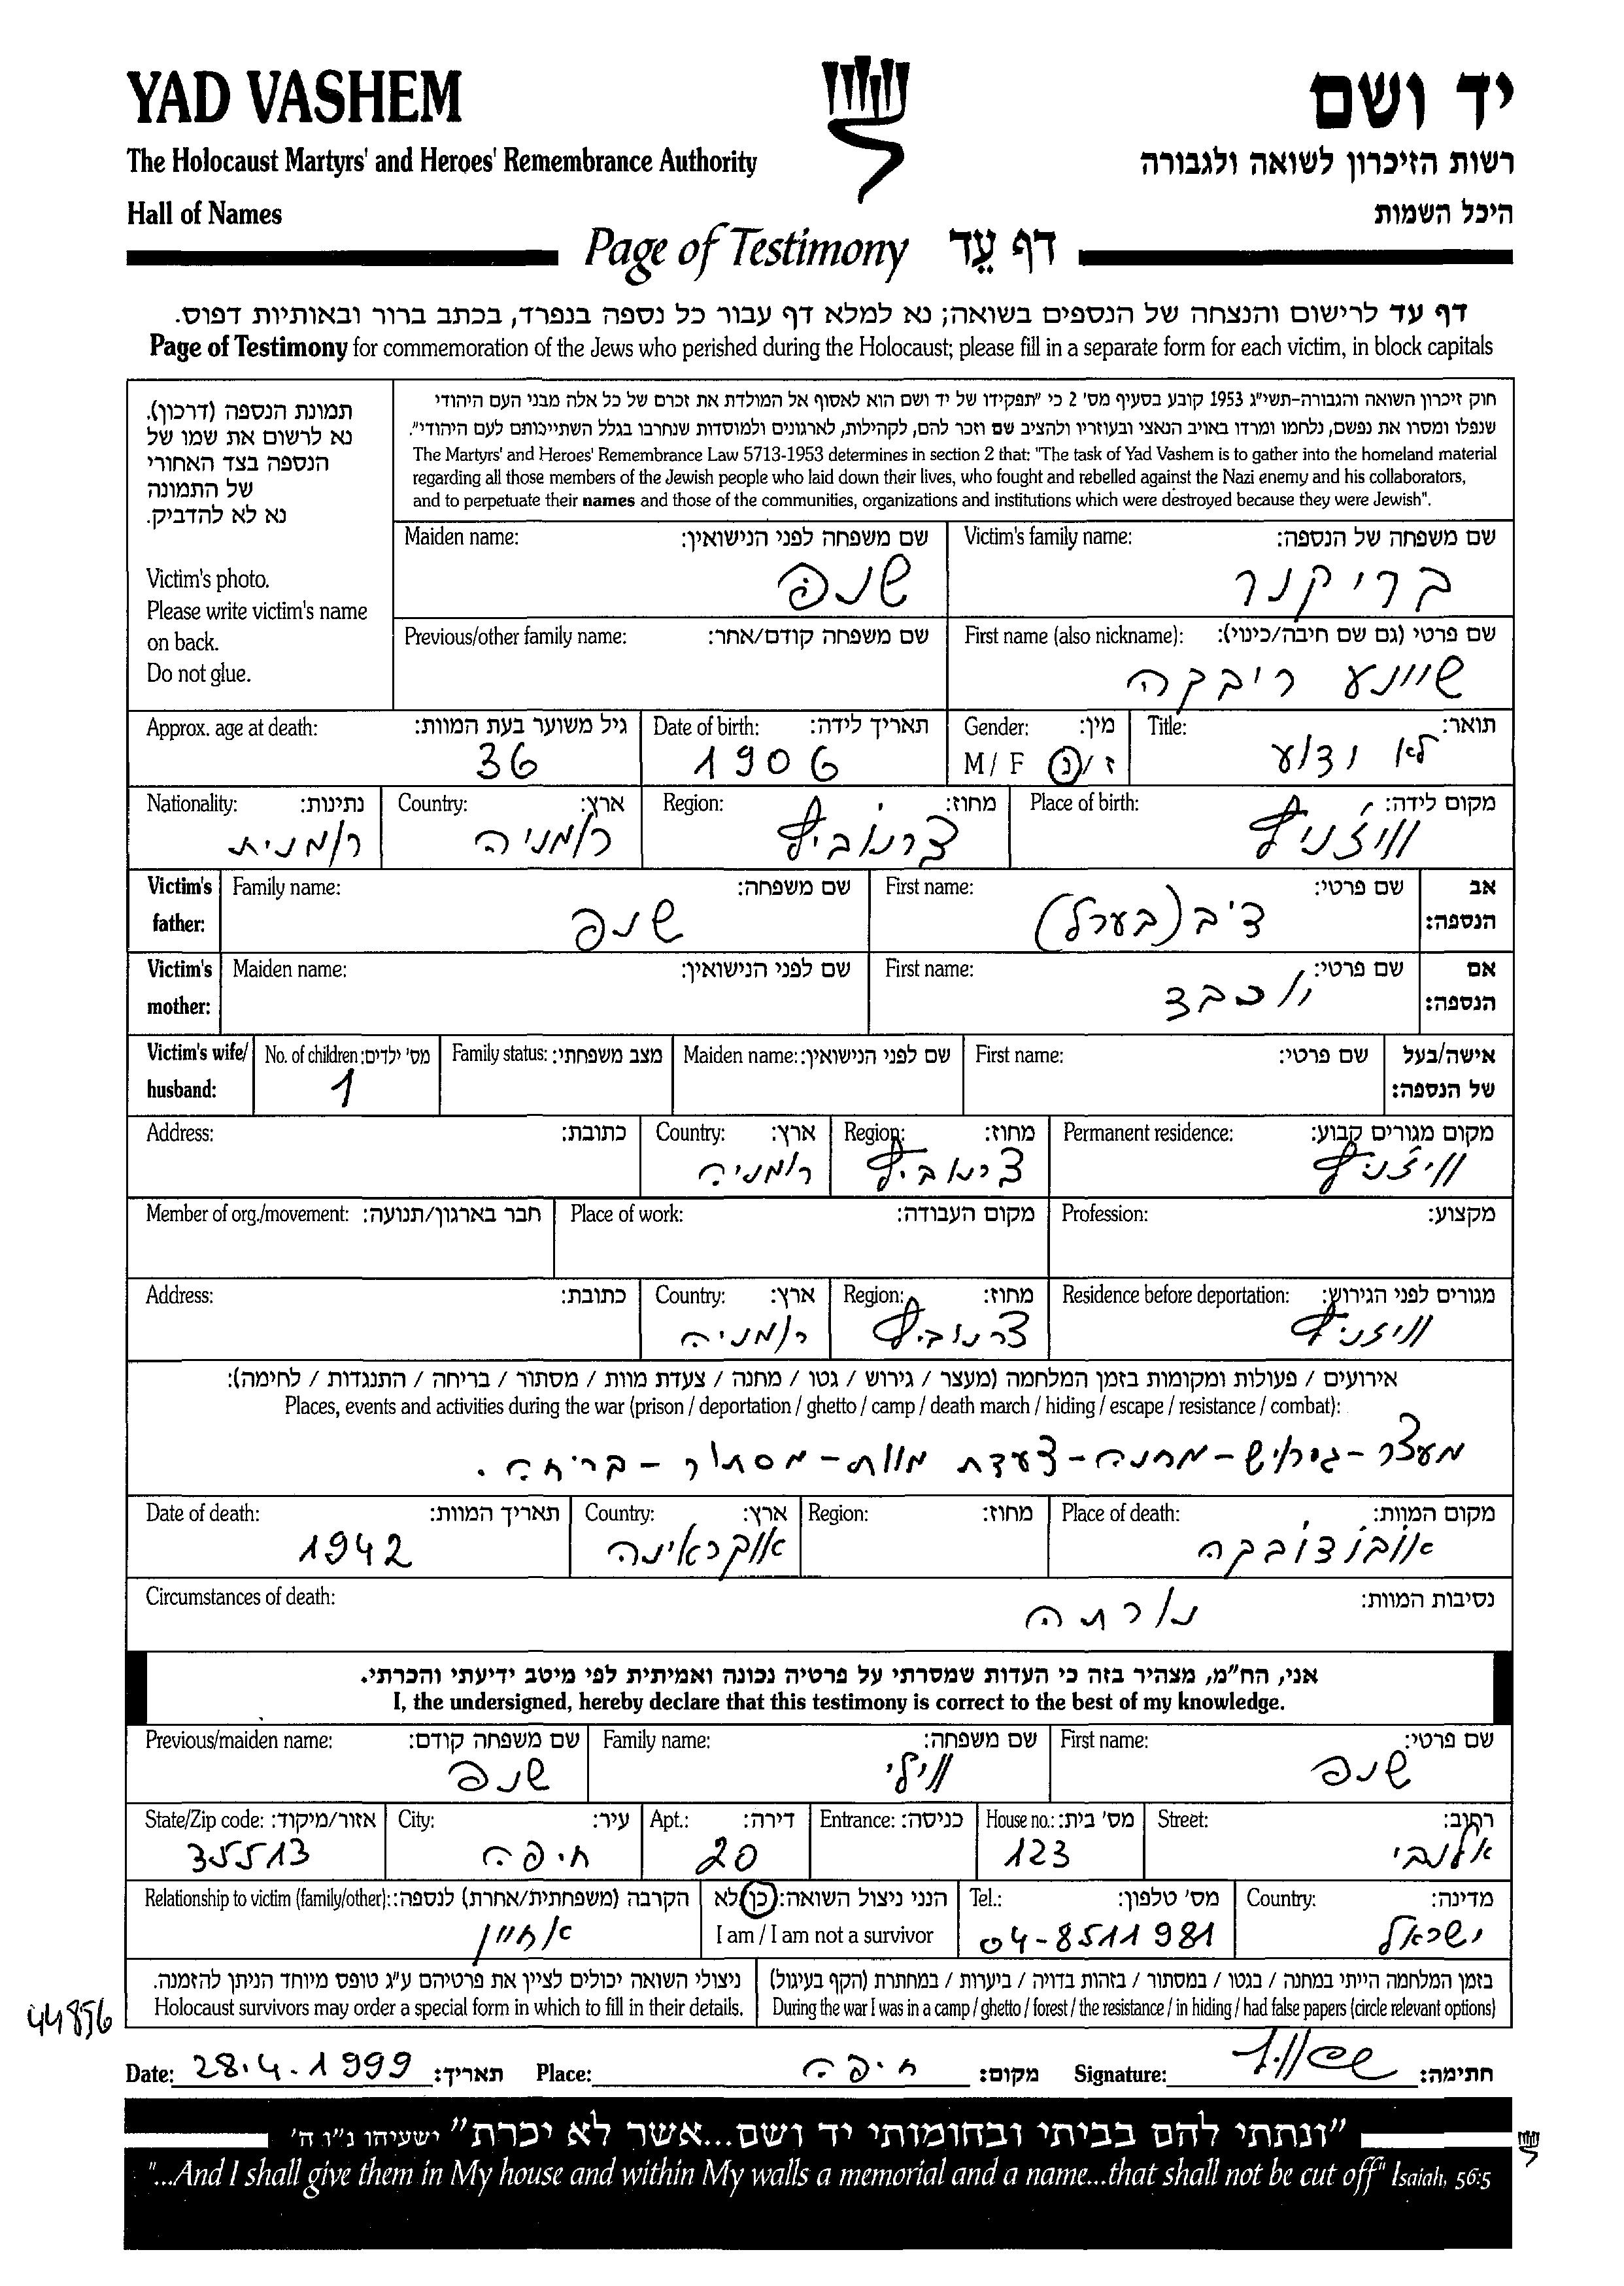 YAD VASHEM
יד ושם
The Holocaust Martyrs' and Heroes' Remembrance Authority
רשות הזיכרון לשואה ולגבורה
Hall of Names
היכל השמות
Page of Testimony דף עֵד
דף עד לרישום והנצחה של הנספים בשואה; נא למלא דף עבור כל נספה בנפרד, בכתב ברור ובאותיות דפוס.
Page of Testimony for commemoration of the Jews who perished during the Holocaust; please fill in a separate form for each victim, in block capitals
תמונת הנספה (דרכון).
נא לרשום את שמו של
הנספה בצד האחורי
של התמונה
נא לא להדביק.
Victim's photo.
Please write victim's name
on back.
Do not glue.
חוק זיכרון השואה והגבורה-תשי"ג 1953 קובע בסעיף מס' 2 כי "תפקידו של יד ושם הוא לאסוף אל המולדת את זכרם של כל אלה מבני העם היהודי
שנפלו ומסרו את נפשם, נלחמו ומרדו באויב הנאצי ובעוזריו ולהציב שם וזכר להם, לקהילות, לארגונים ולמוסדות שנחרבו בגלל השתייכותם לעם היהודי".
The Martyrs' and Heroes' Remembrance Law 5713-1953 determines in section 2 that: "The task of Yad Vashem is to gather into the homeland material
regarding all those members of the Jewish people who laid down their lives, who fought and rebelled against the Nazi enemy and his collaborators,
and to perpetuate their names and those of the communities, organizations and institutions which were destroyed because they were Jewish".
Victim's family name: שם משפחה של הנספה:
בריקנר
Maiden name: שם משפחה לפני הנישואין:
שנפ
First name (also nickname): שם פרטי (גם שם חיבה/כינוי):
שיינע ריבקה
Previous/other family name: שם משפחה קודם/אחר:
Title: תואר:
לא ידוע
Gender: מין:
M / F ז / נ
Date of birth: תאריך לידה:
1906
Approx. age at death: גיל משוער בעת המוות:
36
Place of birth: מקום לידה:
וויזניץ
Region: מחוז:
צרנוביץ
Country: ארץ:
רומניה
Nationality: נתינות:
רומנית
Victim's father: אב הנספה:
First name: שם פרטי:
דיב (בערל)
Family name: שם משפחה:
שנפ
Victim's mother: אם הנספה:
First name: שם פרטי:
יוכבד
Maiden name: שם לפני הנישואין:
Victim's wife/ husband: אישה/בעל של הנספה:
First name: שם פרטי:
Maiden name: שם לפני הנישואין:
Family status: מצב משפחתי:
No. of children: מס' ילדים:
1
Permanent residence: מקום מגורים קבוע:
וויזניץ
Region: מחוז:
צרנוביץ
Country: ארץ:
רומניה
Address: כתובת:
Profession: מקצוע:
Place of work: מקום העבודה:
Member of org./movement: חבר בארגון/תנועה:
Residence before deportation: מגורים לפני הגירוש:
וויזניץ
Region: מחוז:
צרנוביץ
Country: ארץ:
רומניה
Address: כתובת:
אירועים / פעולות ומקומות בזמן המלחמה (מעצר / גירוש / גטו / מחנה / צעדת מוות / מסתור / בריחה / התנגדות / לחימה):
Places, events and activities during the war (prison / deportation / ghetto / camp / death march / hiding / escape / resistance / combat):
מעצר - גירוש - מחנה - צעדת מוות - מסתור - בריחה.
Place of death: מקום המוות:
אובודובקה
Region: מחוז:
Country: ארץ:
אוקראינה
Date of death: תאריך המוות:
1942
Circumstances of death: נסיבות המוות:
נורתה
אני, הח"מ, מצהיר בזה כי העדות שמסרתי על פרטיה נכונה ואמיתית לפי מיטב ידיעתי והכרתי.
I, the undersigned, hereby declare that this testimony is correct to the best of my knowledge.
First name: שם פרטי:
שנפ
Family name: שם משפחה:
ווילי
Previous/maiden name: שם משפחה קודם:
שנפ
Street: רחוב:
אלנבי
House no.: מס' בית:
123
Entrance: כניסה:
Apt.: דירה:
20
City: עיר:
חיפה
State/Zip code: אזור/מיקוד:
35513
Country: מדינה:
ישראל
Tel.: מס' טלפון:
04-8511981
הנני ניצול השואה: כן/לא
I am / I am not a survivor
Relationship to victim (family/other): הקרבה (משפחתית/אחרת) לנספה:
אחיין
בזמן המלחמה הייתי במחנה / בגטו / במסתור / בזהות בדויה / ביערות / במחתרת (הקף בעיגול)
During the war I was in a camp / ghetto / forest / the resistance / in hiding / had false papers (circle relevant options)
ניצולי השואה יכולים לציין את פרטיהם ע"ג טופס מיוחד הניתן להזמנה.
Holocaust survivors may order a special form in which to fill in their details.
44856
Date: 28.4.1999 תאריך: Place: חיפה מקום: Signature: חתימה:
"ונתתי להם בביתי ובחומותי יד ושם...אשר לא יכרת" ישעיהו נ"ו ה'
"...And I shall give them in My house and within My walls a memorial and a name...that shall not be cut off" Isaiah, 56:5